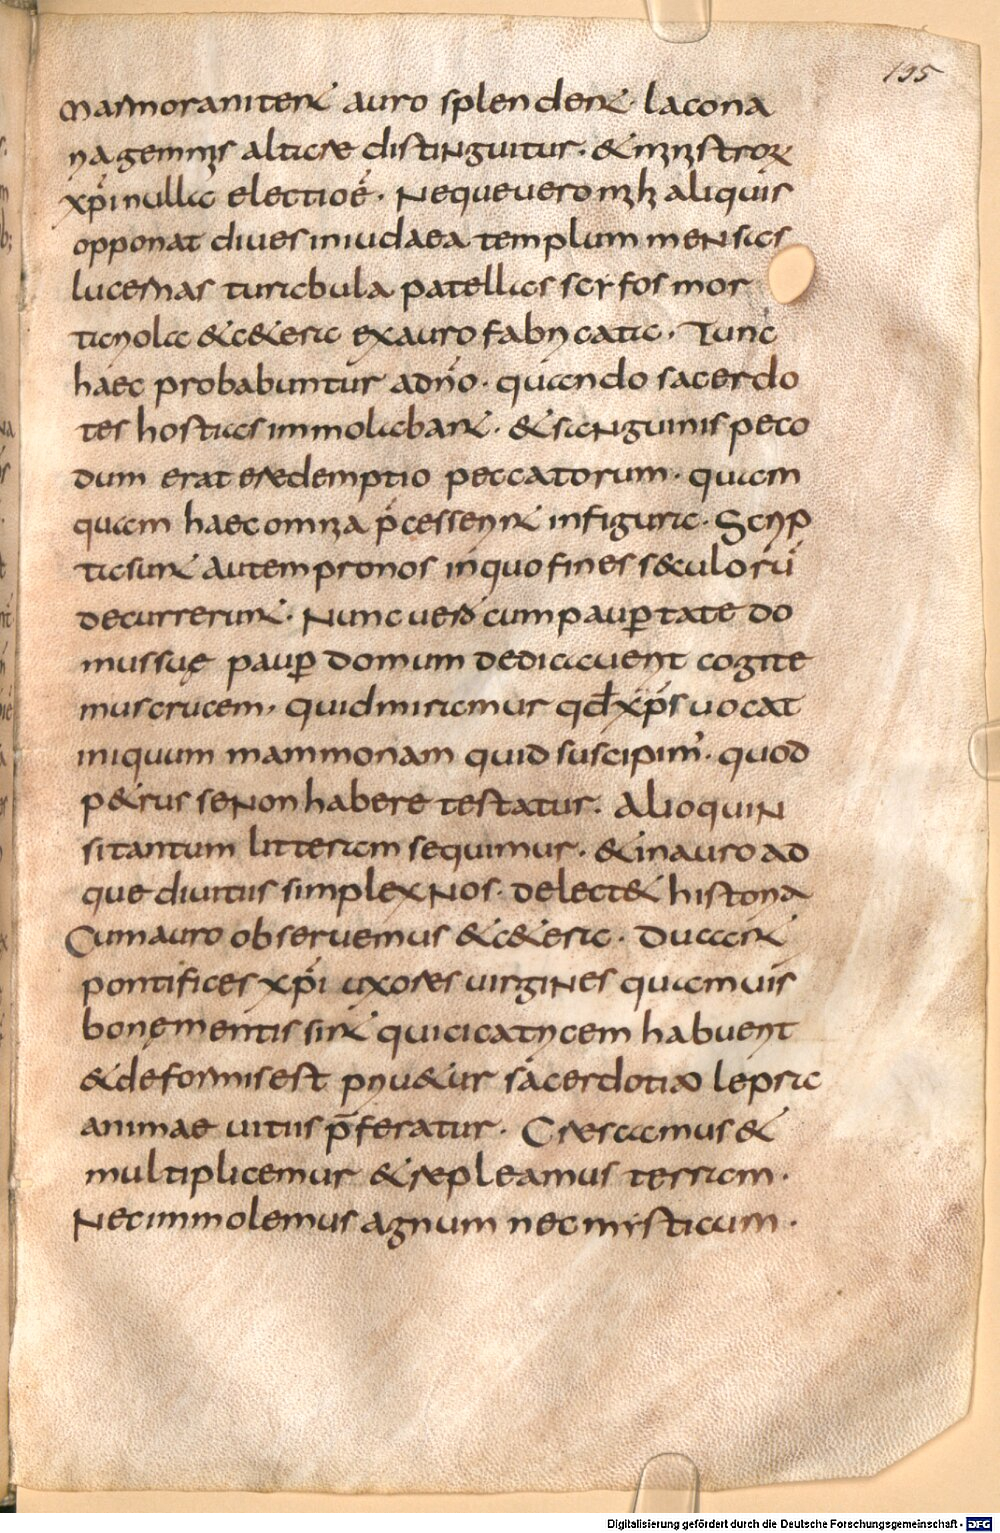 195
marmora nitent auro splendent lacona
ria gemmis altare distinguitur. & ministror
xp̄i nulla electio ē. Neque uero mihi aliquis
opponat diues in iudaea templum mensas
lucernas turibula patellas scyfos mor
tariola & cetera ex auro fabricata. Tunc
haec probabuntur a dn̄o. quando sacerdo
tes hostias immolabant. & sanguinis peco
dum erat redemptio peccatorum. quam
quam haec omnia p̄cesserint in figura. Scrip
ta sunt autem pro nos in quo fines saeculorū
decurrerunt. Nunc uero cum paup̱tate do
mus suę paup̱ domum dedicauerit cogite
mus crucem. quid miramur qđ xp̄s uocat
iniquum mammonam quid suscipim'. quod
petrus se non habere testatur. Alioquin
si tantum litteram sequimur. & in auro ad
que diuitiis simplex nos delectet historia
Cum auro obseruemus & cetera. Ducant
pontifices xp̄i uxores uirgines quamuis
bonę mentis sint qui cicatricem habuerit
& deformis est priuetur sacerdotio lepra
animae uitiis p̄feratur. Crescamus &
multiplicemur & repleamus terram.
Nec immolemus agnum nec mysticum.
Digitalisierung gefördert durch die Deutsche Forschungsgemeinschaft - DFG